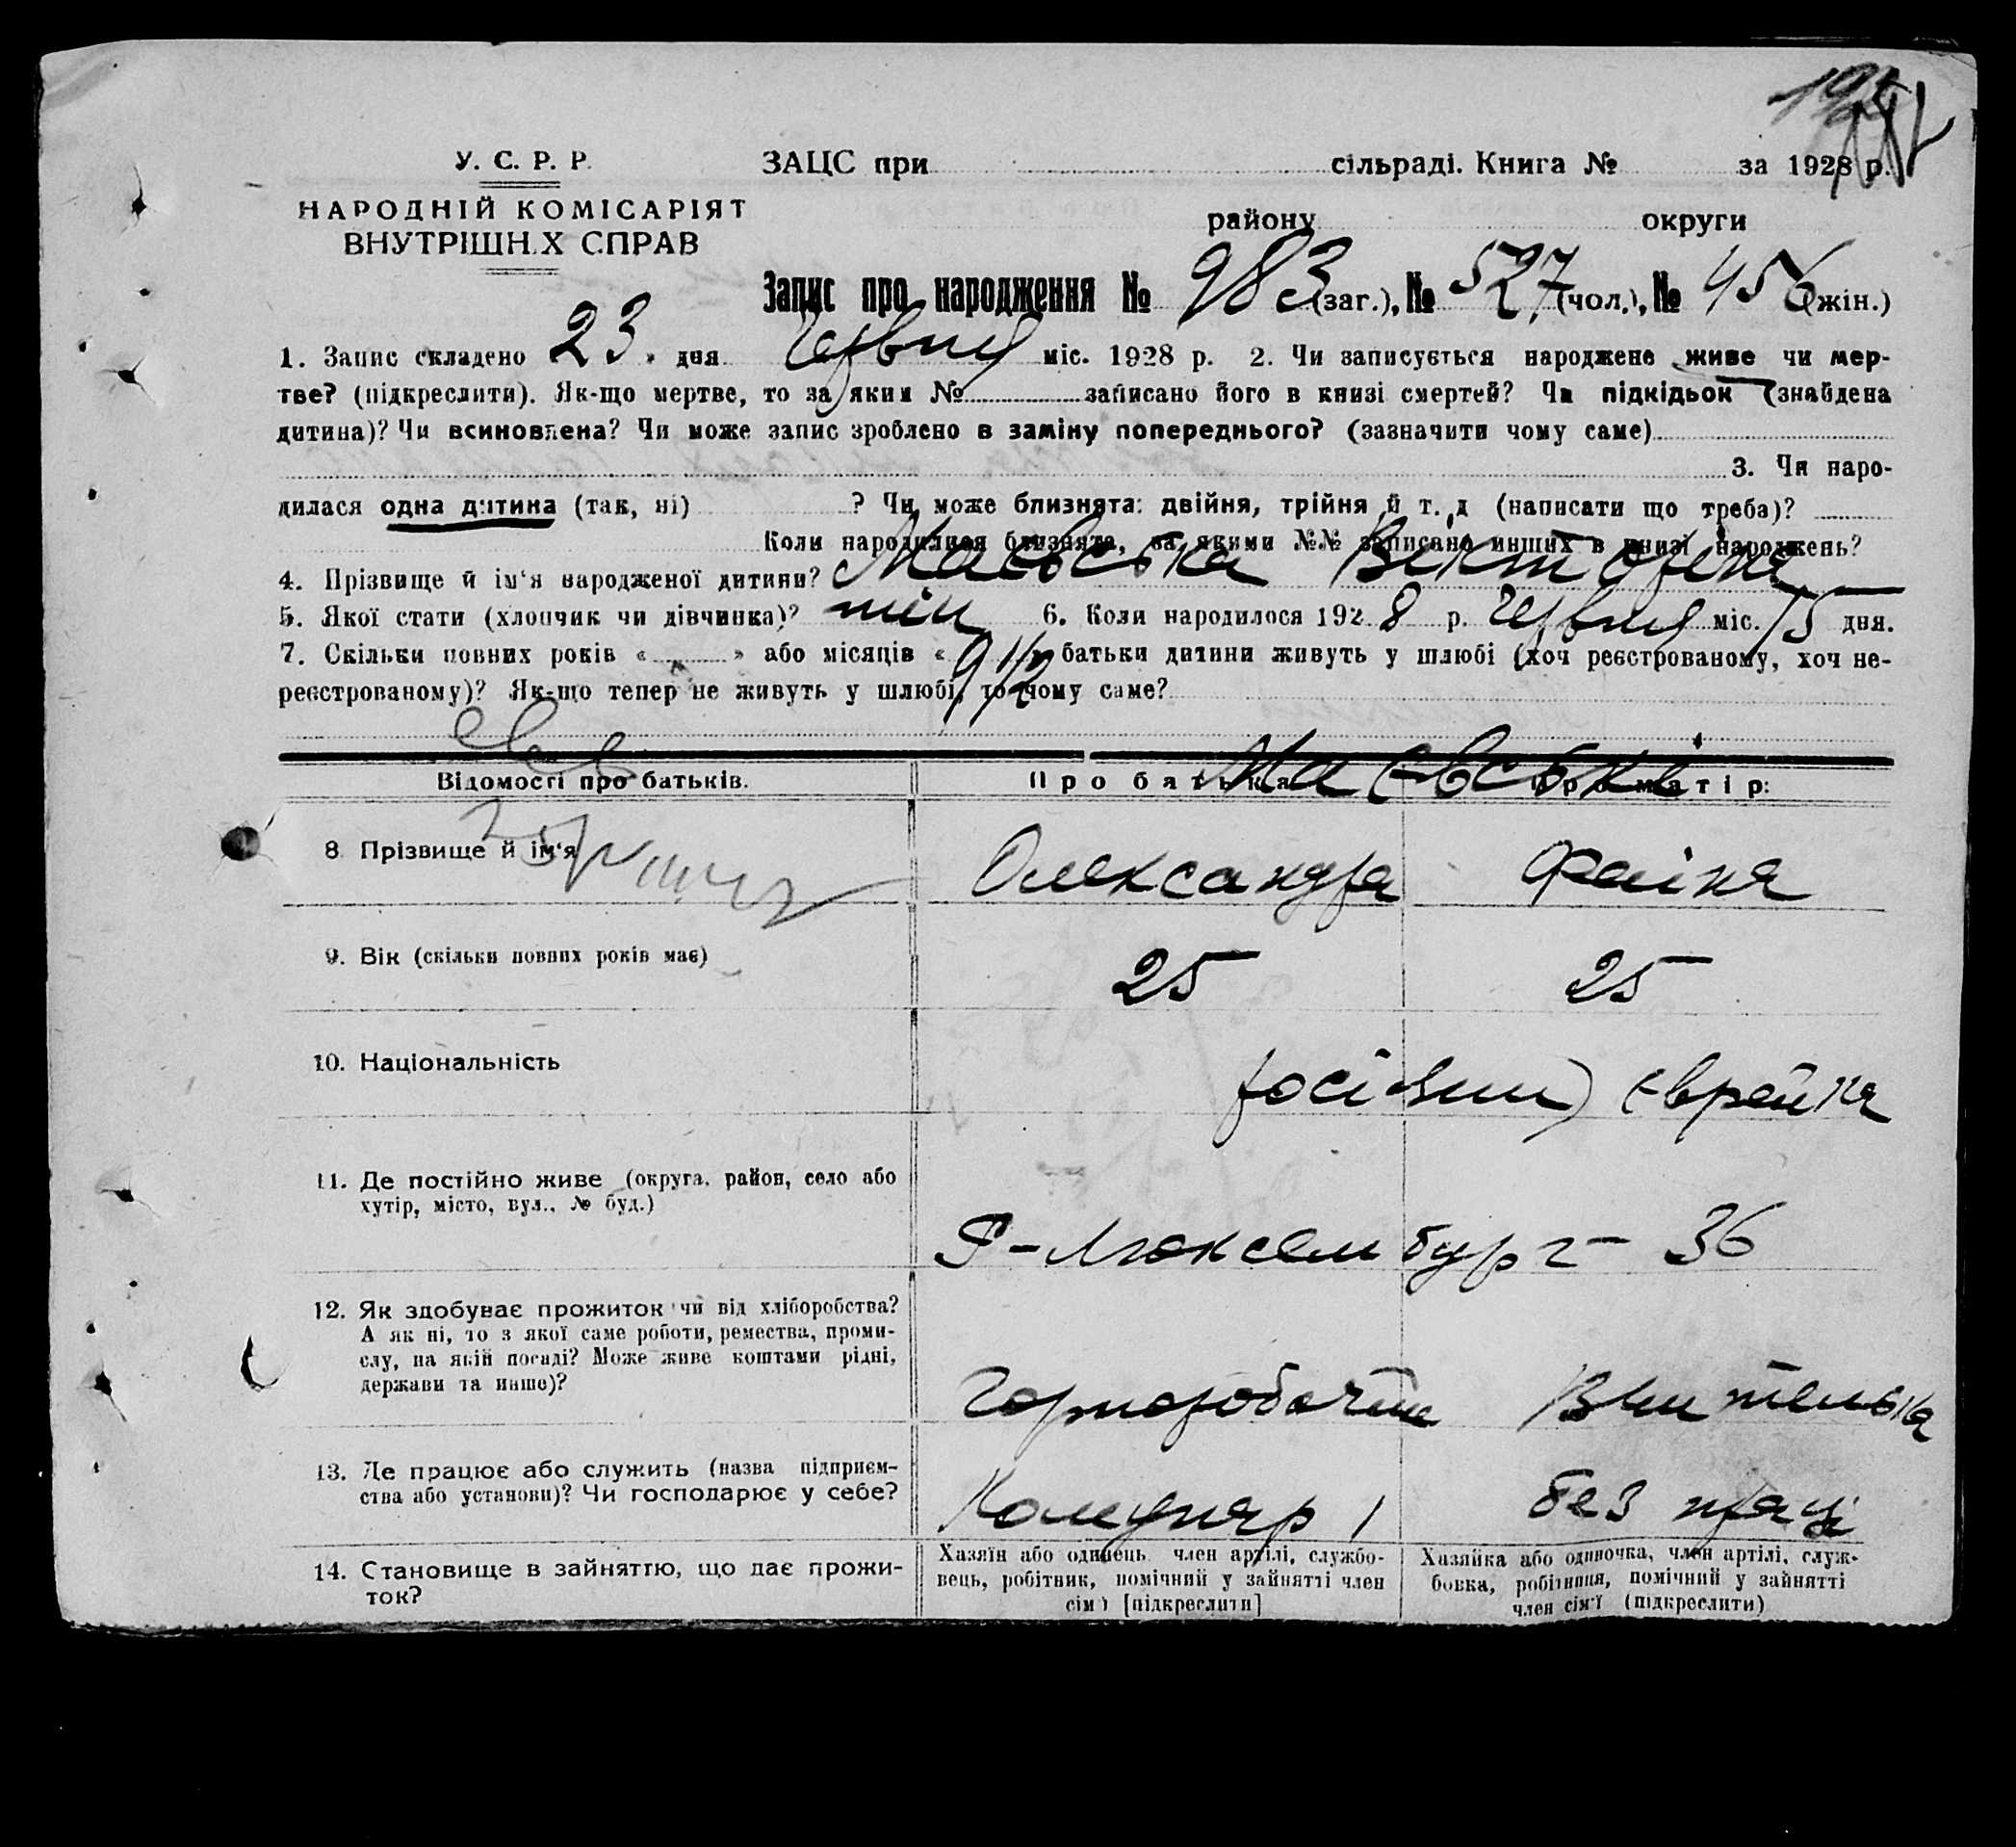 У. С. Р. Р.
НАРОДНІЙ КОМІСАРІЯТ
ВНУТРІШН.Х СПРАВ
ЗАЦС при сільраді. Книга № за 1928 р.
району округи
Запис про народження № 983 (заг.), № 527 (чол.), № 456 (жін.)
1. Запис складено 23 дня червня міс. 1928 р. 2. Чи записується народжене живе чи мер-
тве? (підкреслити). Як-що мертве, то за яким № записано його в книзі смертей? Чи підкідьок (знайдена
дитина)? Чи всиновлена? Чи може запис зроблено в заміну попереднього? (зазначити чому саме)
3. Чи наро-
дилася одна дитина (так, ні) ? Чи може близнята: двійня, трійня й т. д (написати що треба)?
Коли народилися близнята, за якими №№ записано инших в книзі народжень?
4. Прізвище й ім‘я народженої дитини? Маєвська
5. Якої стати (хлопчик чи дівчинка)? жін 6. Коли народилося 1928 р. червня міс. 15 дня.
7. Скільки повних років « » або місяців « 9 1/2 батьки дитини живуть у шлюбі (хоч реєстрованому, хоч не-
реєстрованому)? Як-що тепер не живуть у шлюбі, то чому саме?
Маєвські
Відомості про батьків. Про батька Про матір:
8 Прізвище й ім‘я Олександра Фаїня
9. Вік (скільки повних років має) 25 25
10. Національність росіянин Єврейка
11. Де постійно живе (округа, район, село або
хутір, місто, вул., № буд.)
Р-Люксембург- 36
12. Як здобуває прожиток чи від хліборобства?
А як ні, то з якої саме роботи, ремества, проми-
слу, на якій посаді? Може живе коштами рідні,
держави та инше)?
Чорноробочий Вчителька
13. Де працює або служить (назва підприєм-
ства або установи)? Чи господарює у себе?
Комунар 1 без праці
14. Становище в зайняттю, що дає прожи-
ток?
Хазяїн або одинець член артілі, службо-
вець, робітник, помічний у зайнятті член
сім‘ї [підкреслити]
Хазяйка або одиночка, член артілі, служ-
бовка, робітниця, помічний у зайнятті
член сім‘ї (підкреслити)